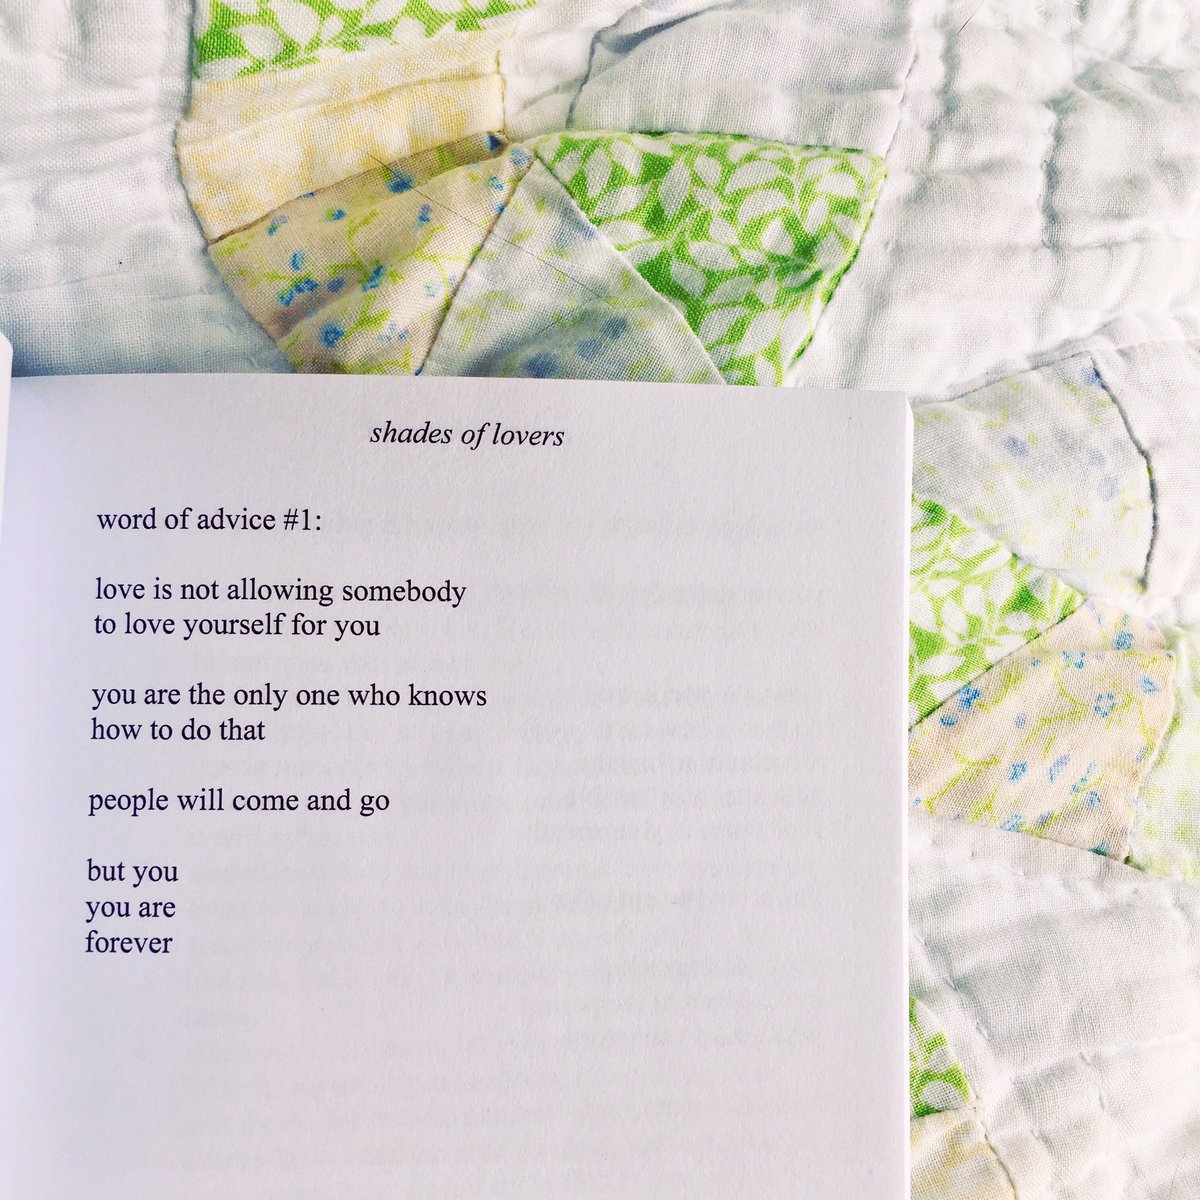 shades of lovers
word of advice #1:
love is not allowing somebody
to love yourself for you
you are the only one who knows
how to do that
people will come and go
but you
you are
forever